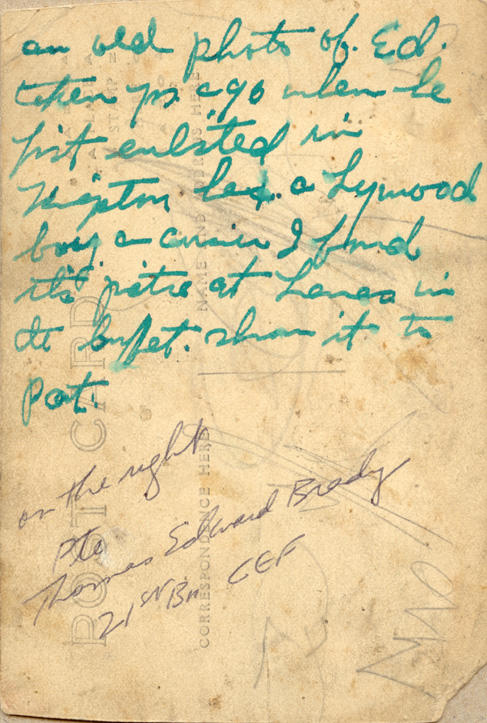 an old photo of Ed.
taken yrs. ago when he
first enlisted in
Kingston
a Lynwood
boy a cousin I found
this picture at Lenas in
de buffet. show it to
Pat.
on the right
Pte
Thomas Edward Brady
21st Bn CEF
POST CARD
CORRESPONDENCE HERE
NAME AND ADDRESS HERE